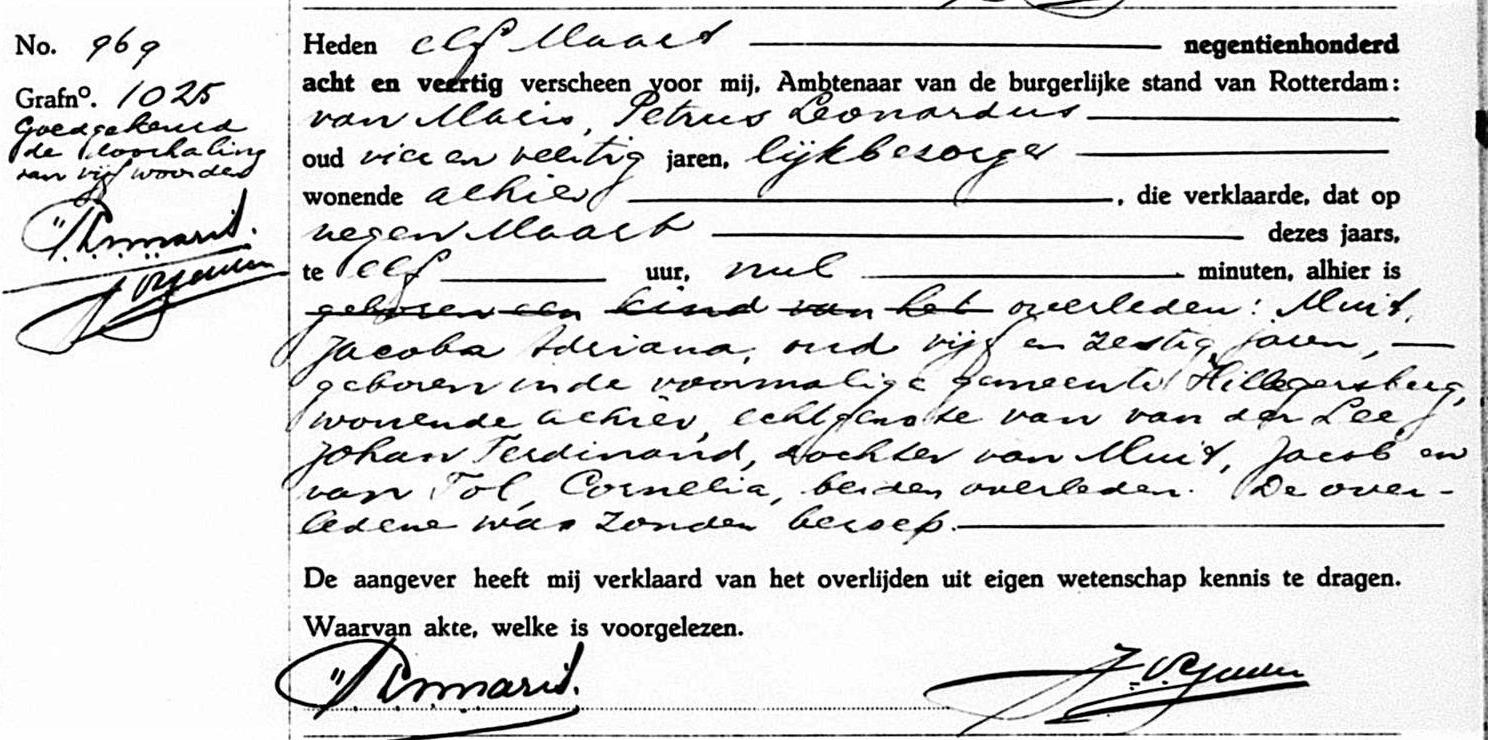 No. 969
Grafnº. 1025
Goedgekeurd
de doorhaling
van vijf woorden
Heden elf Maart negentienhonderd
acht en veertig verscheen voor mij, Ambtenaar van de burgerlijke stand van Rotterdam:
van Maris, Petrus Leonardus
oud vier en veertig jaren, lijkbezorger
wonende alhier, die verklaarde, dat op
negen Maart dezes jaars,
te elf uur, nul minuten, alhier is
geboren een kind van het overleden: Muit,
Jacoba Adriana, oud vijf en zestig jaren,
geboren in de voormalige gemeente Hillegersberg,
wonende alhier, echtgenote van van der Lee,
Johan Ferdinand, dochter van Muit, Jacob en
van Tol, Cornelia, beiden overleden. De over-
ledene was zonder beroep.
De aangever heeft mij verklaard van het overlijden uit eigen wetenschap kennis te dragen.
Waarvan akte, welke is voorgelezen.